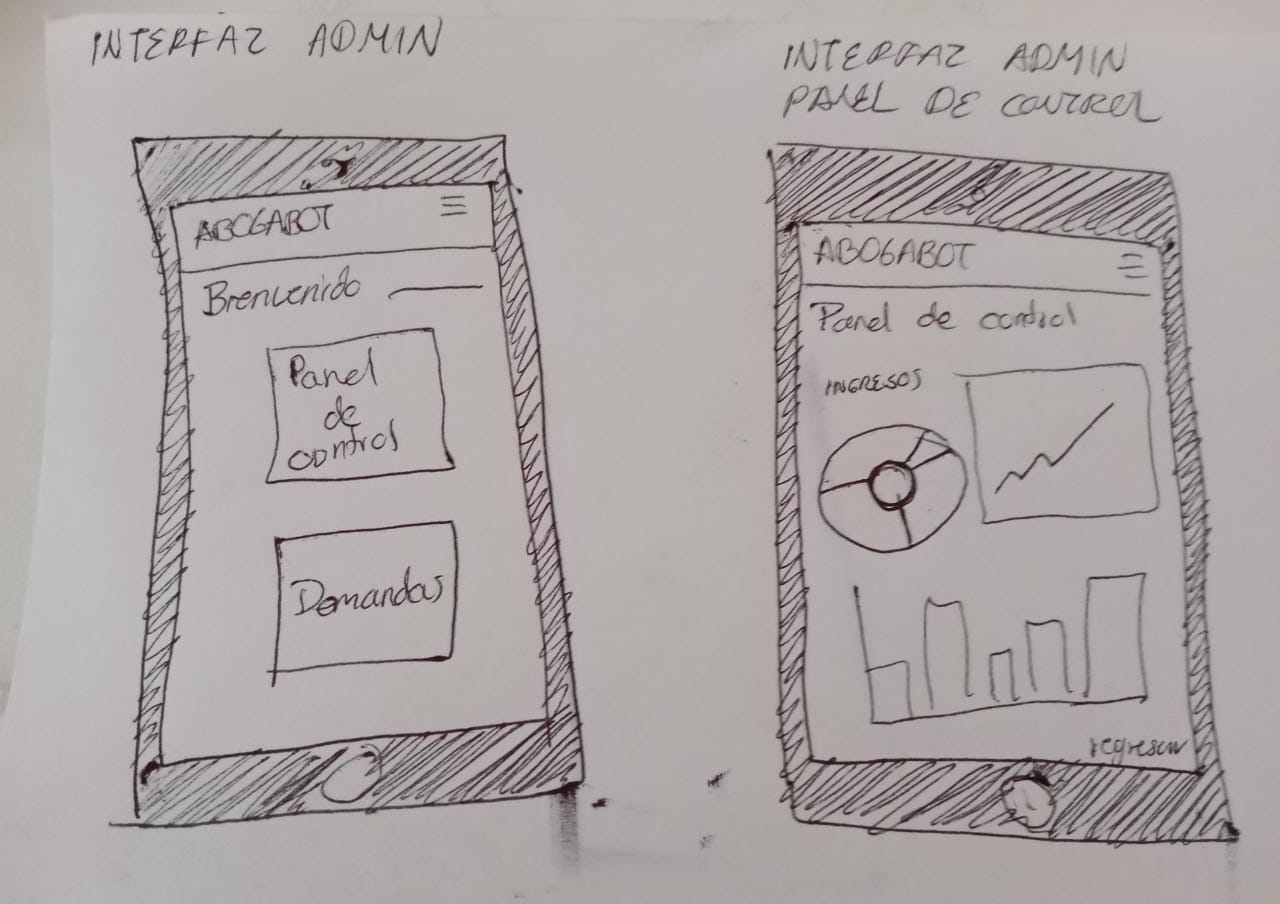 INTERFAZ ADMIN
ABOGABOT
Bienvenido
Panel
de
control
Demandas
INTERFAZ ADMIN
PANEL DE CONTROL
ABOGABOT
Panel de control
INGRESOS
regresar